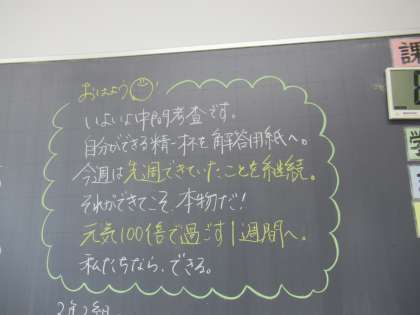 おはよう
いよいよ中間考査です。
自分ができる精一杯を解答用紙へ。
今週は先週できていたことを継続。
それができてこそ、本物だ!
元気100倍で過ごす1週間へ。
私たちなら、できる。
2年2組
課
学